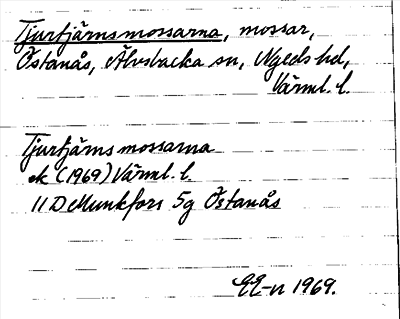 Tjurtjärnsmossarna, mossar,
Östanås, Älvsbacka sn, Nyeds hd,
Värml. l.
Tjurtjärnsmossarna
ek (1969) Värml. l.
11D Munkfors 5g Östanås
EE-n 1969.